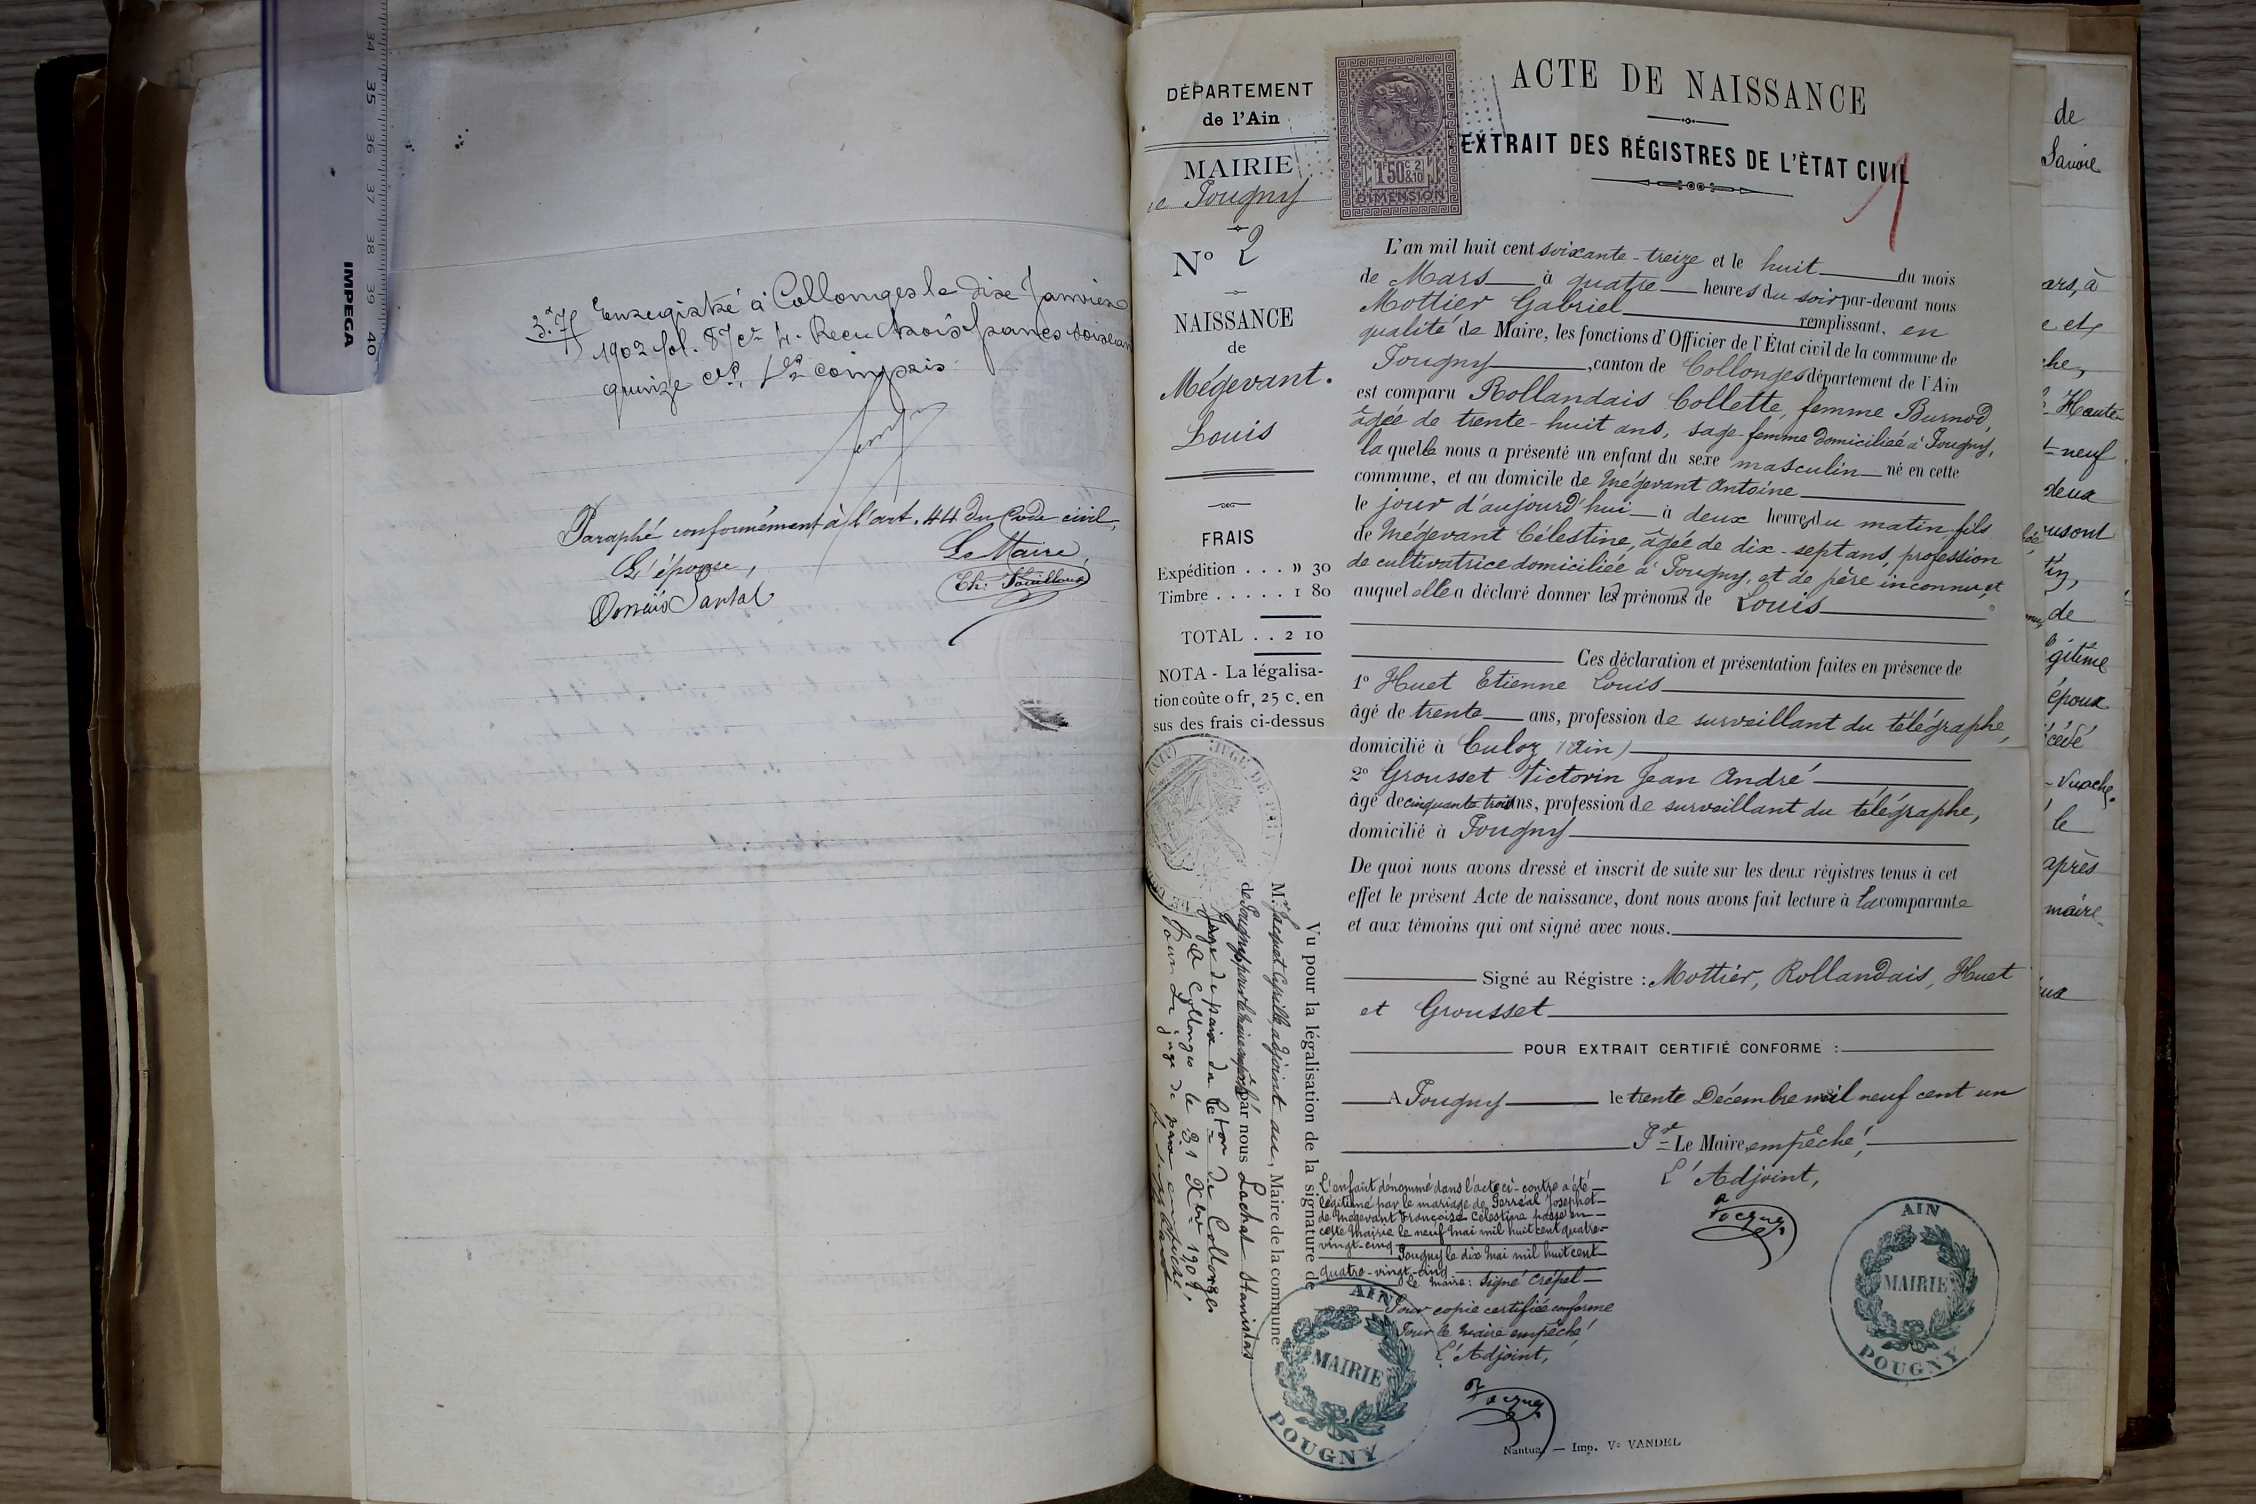 34 35 36 37 38 39 40
IMPEGA
Enregistré à Collonges le dix Janvier
1902 fol. 87 c. 4. Reçu trois francs soixante
quinze ces, compris
Paraphé conformément à l'art. 44 du Code civil,
L'épouse, Le Maire,
DÉPARTEMENT
de l'Ain
MAIRIE
de Pougny
N° 2
NAISSANCE
de
Mégevant
Louis
FRAIS
Expédition . . . » 30
Timbre . . . . . 1 80
TOTAL . . 2 10
NOTA - La légalisa-
tion coûte 0 fr. 25 c. en
sus des frais ci-dessus
1 50c 2/10
DIMENSION
ACTE DE NAISSANCE
EXTRAIT DES RÉGISTRES DE L'ÈTAT CIVIL
L'an mil huit cent soixante-treize et le huit du mois
de Mars à quatre heures du soir par-devant nous
Mottier Gabriel remplissant, en
qualité de Maire, les fonctions d'Officier de l'État civil de la commune de
Pougny, canton de Collonges département de l'Ain
est comparu Rollandais Collette, femme Burnod,
âgée de trente-huit ans, sage-femme domiciliée à Pougny,
laquelle nous a présenté un enfant du sexe masculin né en cette
commune, et au domicile de Mégevant Antoine
le jour d'aujourd'hui à deux heures du matin, fils
de Mégevant Célestine, âgée de dix-sept ans, profession
de cultivatrice domiciliée à Pougny, et de père inconnu, et
auquel elle a déclaré donner les prénoms de Louis
Ces déclaration et présentation faites en présence de
1° Huet Etienne Louis
âgé de trente ans, profession de surveillant du télégraphe,
domicilié à Culoz (Ain)
2° Grousset Victorin Jean André
âgé de cinquante trois ans, profession de surveillant du télégraphe,
domicilié à Pougny
De quoi nous avons dressé et inscrit de suite sur les deux régistres tenus à cet
effet le présent Acte de naissance, dont nous avons fait lecture à la comparante
et aux témoins qui ont signé avec nous.
Signé au Régistre : Mottier, Rollandais, Huet
et Grousset
POUR EXTRAIT CERTIFIÉ CONFORME :
A Pougny le trente Décembre mil neuf cent un
Pr Le Maire empêché,
L'Adjoint,
L'enfant dénommé dans l'acte ci-contre a été
légitimé par le mariage de Perréal Joseph et
de Mégevant Françoise Célestine passé en
cette Mairie le neuf Mai mil huit cent quatre-
vingt-cinq
Pougny le dix Mai mil huit cent
quatre-vingt-cinq
Le Maire: signé Crépel
Pour copie certifiée conforme
Pour le Maire empêché
L'Adjoint,
AIN MAIRIE POUGNY
AIN MAIRIE POUGNY
Nantua, — Imp. Ve VANDEL
Vu pour la légalisation de la signature de
Mr. adjoint au, Maire de la commune
de Pougny, pour le maire empêché par nous Lachat Stanislas
Juge de paix du Cton de Collonges
A Collonges le 31 Xbre 1901.
Pour le juge de paix empêché,
de
Savoie
ars, à
e et
Haute-
neuf
deux
de
époux
le
après
maire